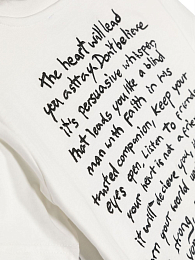 the heart will lead
you astray. Don't believe
it's persuasive whispers
that leads you like a blind
man with faith in his
trusted companion, Keep your
eyes open, Listen to
your heart is not a
it will deceive you
your world
strong